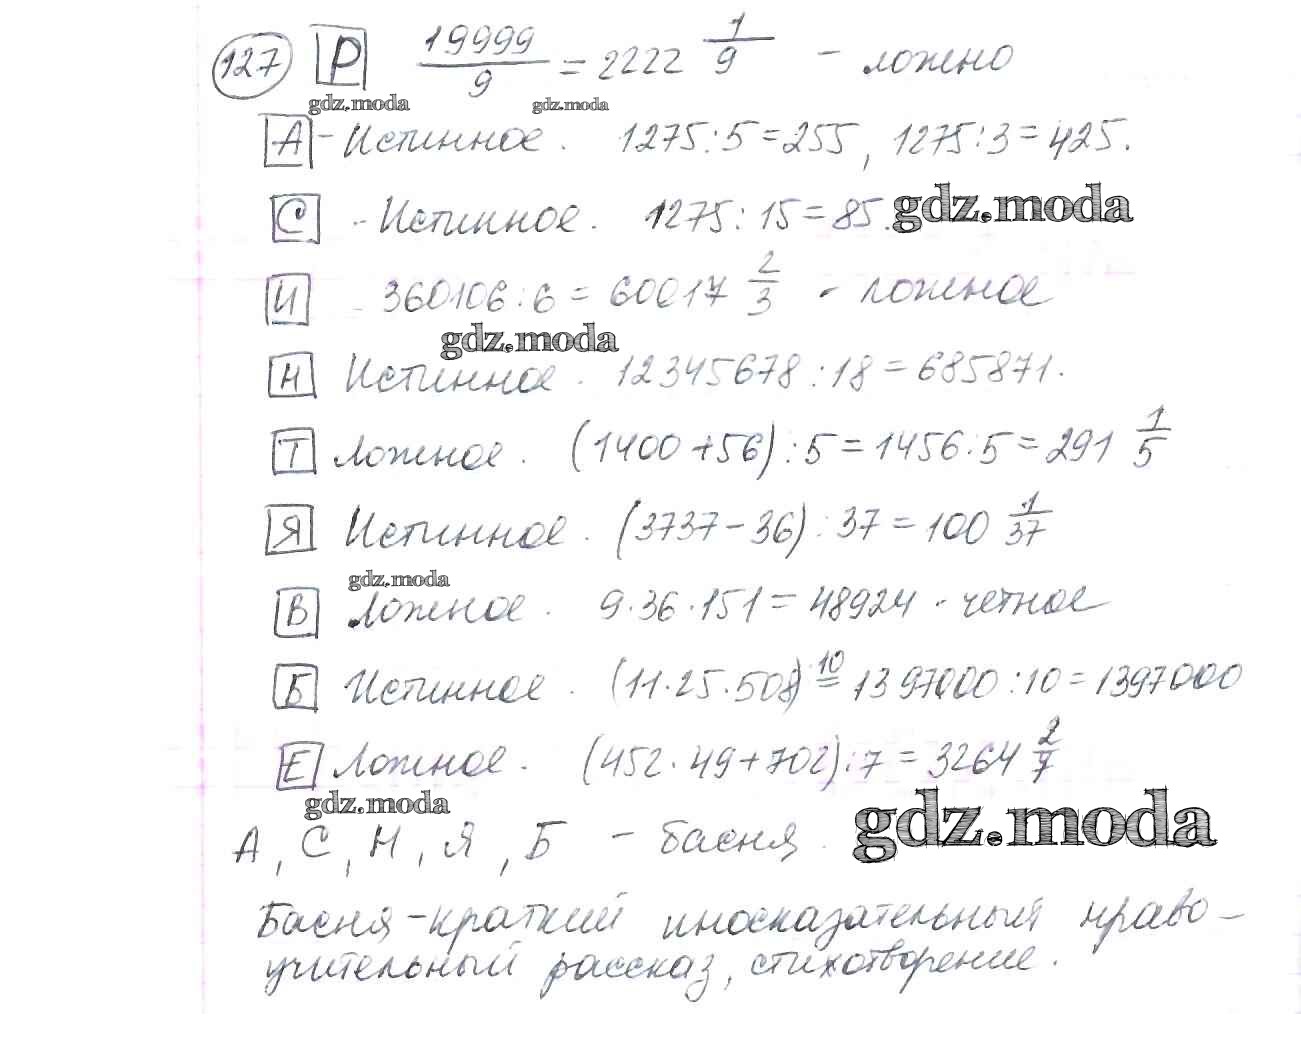 127 Р 19999/9 = 2222 1/9 - ложно
gdz.moda gdz.moda
А - Истинное. 1275:5=255, 1275:3=425.
С - Истинное. 1275:15=85. gdz.moda
И 360106:6=60017 2/3 - ложное
gdz.moda
Н Истинное. 12345678:18=685871.
Т Ложное. (1400+56):5=1456:5=291 1/5
Я Истинное. (3737-36):37=100 1/37
gdz.moda
В Ложное. 9·36·151=48924 - четное
Б Истинное. (11·25·508) 10= 1397000:10=1397000
Е Ложное. (452·49+702):7=3264 2/7
gdz.moda
А, С, Н, Я, Б - басня. gdz.moda
Басня - краткий иносказательный нраво-
учительный рассказ, стихотворение.